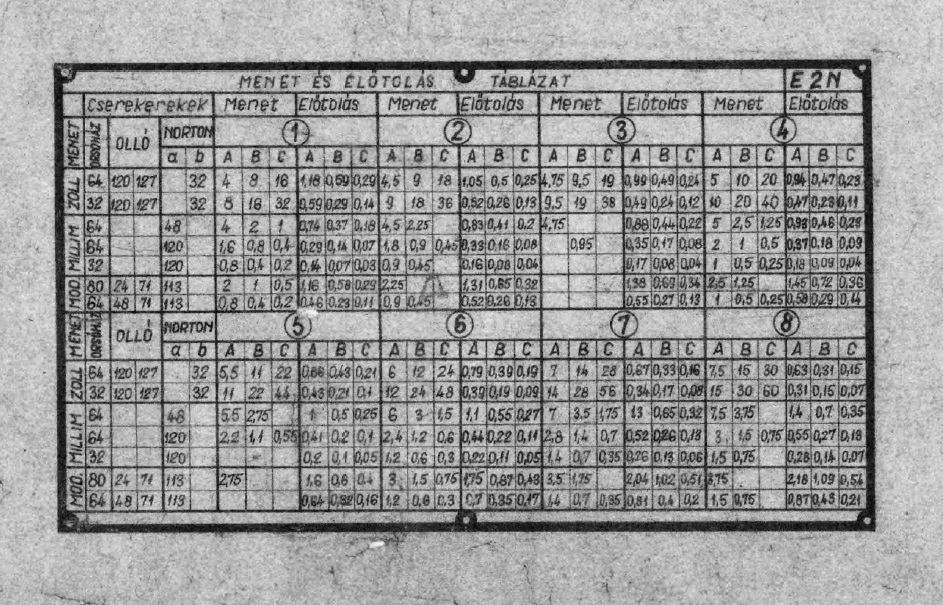 MENET ÉS ELŐTOLÁS TÁBLÁZAT E2N
Cserekerekek Menet Előtolás Menet Előtolás Menet Előtolás Menet Előtolás
MENET ORSÓHÁZ OLLÓ NORTON 1 2 3 4
a b A B C A B C A B C A B C A B C A B C A B C A B C
ZOLL 64 120 127 32 4 8 16 1,18 0,59 0,29 4,5 9 18 1,05 0,5 0,25 4,75 9,5 19 0,99 0,49 0,24 5 10 20 0,94 0,47 0,23
32 120 127 32 8 16 32 0,59 0,29 0,14 9 18 36 0,52 0,26 0,13 9,5 19 38 0,49 0,24 0,12 10 20 40 0,47 0,23 0,11
MILLIM 64 48 4 2 1 0,74 0,37 0,18 4,5 2,25 0,83 0,41 0,2 4,75 0,88 0,44 0,22 5 2,5 1,25 0,93 0,46 0,23
64 120 1,6 0,8 0,4 0,29 0,14 0,07 1,8 0,9 0,45 0,33 0,16 0,08 0,95 0,35 0,17 0,08 2 1 0,5 0,37 0,18 0,09
32 120 0,8 0,4 0,2 0,14 0,07 0,03 0,9 0,45 0,16 0,08 0,04 0,17 0,08 0,04 1 0,5 0,25 0,18 0,09 0,04
MOD. 80 24 71 113 2 1 0,5 1,16 0,58 0,29 2,25 1,31 0,65 0,32 1,38 0,69 0,34 2,5 1,25 1,45 0,72 0,36
64 48 71 113 0,8 0,4 0,2 0,46 0,23 0,11 0,9 0,45 0,52 0,26 0,13 0,55 0,27 0,13 1 0,5 0,25 0,58 0,29 0,14
MENET ORSÓHÁZ OLLÓ NORTON 5 6 7 8
a b A B C A B C A B C A B C A B C A B C A B C A B C
ZOLL 64 120 127 32 5,5 11 22 0,86 0,43 0,21 6 12 24 0,79 0,39 0,19 7 14 28 0,67 0,33 0,16 7,5 15 30 0,63 0,31 0,15
32 120 127 32 11 22 44 0,43 0,21 0,1 12 24 48 0,39 0,19 0,09 14 28 56 0,34 0,17 0,08 15 30 60 0,31 0,15 0,07
MILLIM 64 48 5,5 2,75 1 0,5 0,25 6 3 1,5 1,1 0,55 0,27 7 3,5 1,75 1,3 0,65 0,32 7,5 3,75 1,4 0,7 0,35
64 120 2,2 1,1 0,55 0,41 0,2 0,1 2,4 1,2 0,6 0,44 0,22 0,11 2,8 1,4 0,7 0,52 0,26 0,13 3 1,5 0,75 0,55 0,27 0,13
32 120 0,2 0,1 0,05 1,2 0,6 0,3 0,22 0,11 0,05 1,4 0,7 0,35 0,26 0,13 0,06 1,5 0,75 0,28 0,14 0,07
MOD. 80 24 71 113 2,75 1,6 0,8 0,4 3 1,5 0,75 1,75 0,87 0,43 3,5 1,75 2,04 1,02 0,51 3,75 2,18 1,09 0,54
64 48 71 113 0,64 0,32 0,16 1,2 0,6 0,3 0,7 0,35 0,17 1,4 0,7 0,35 0,81 0,4 0,2 1,5 0,75 0,87 0,43 0,21